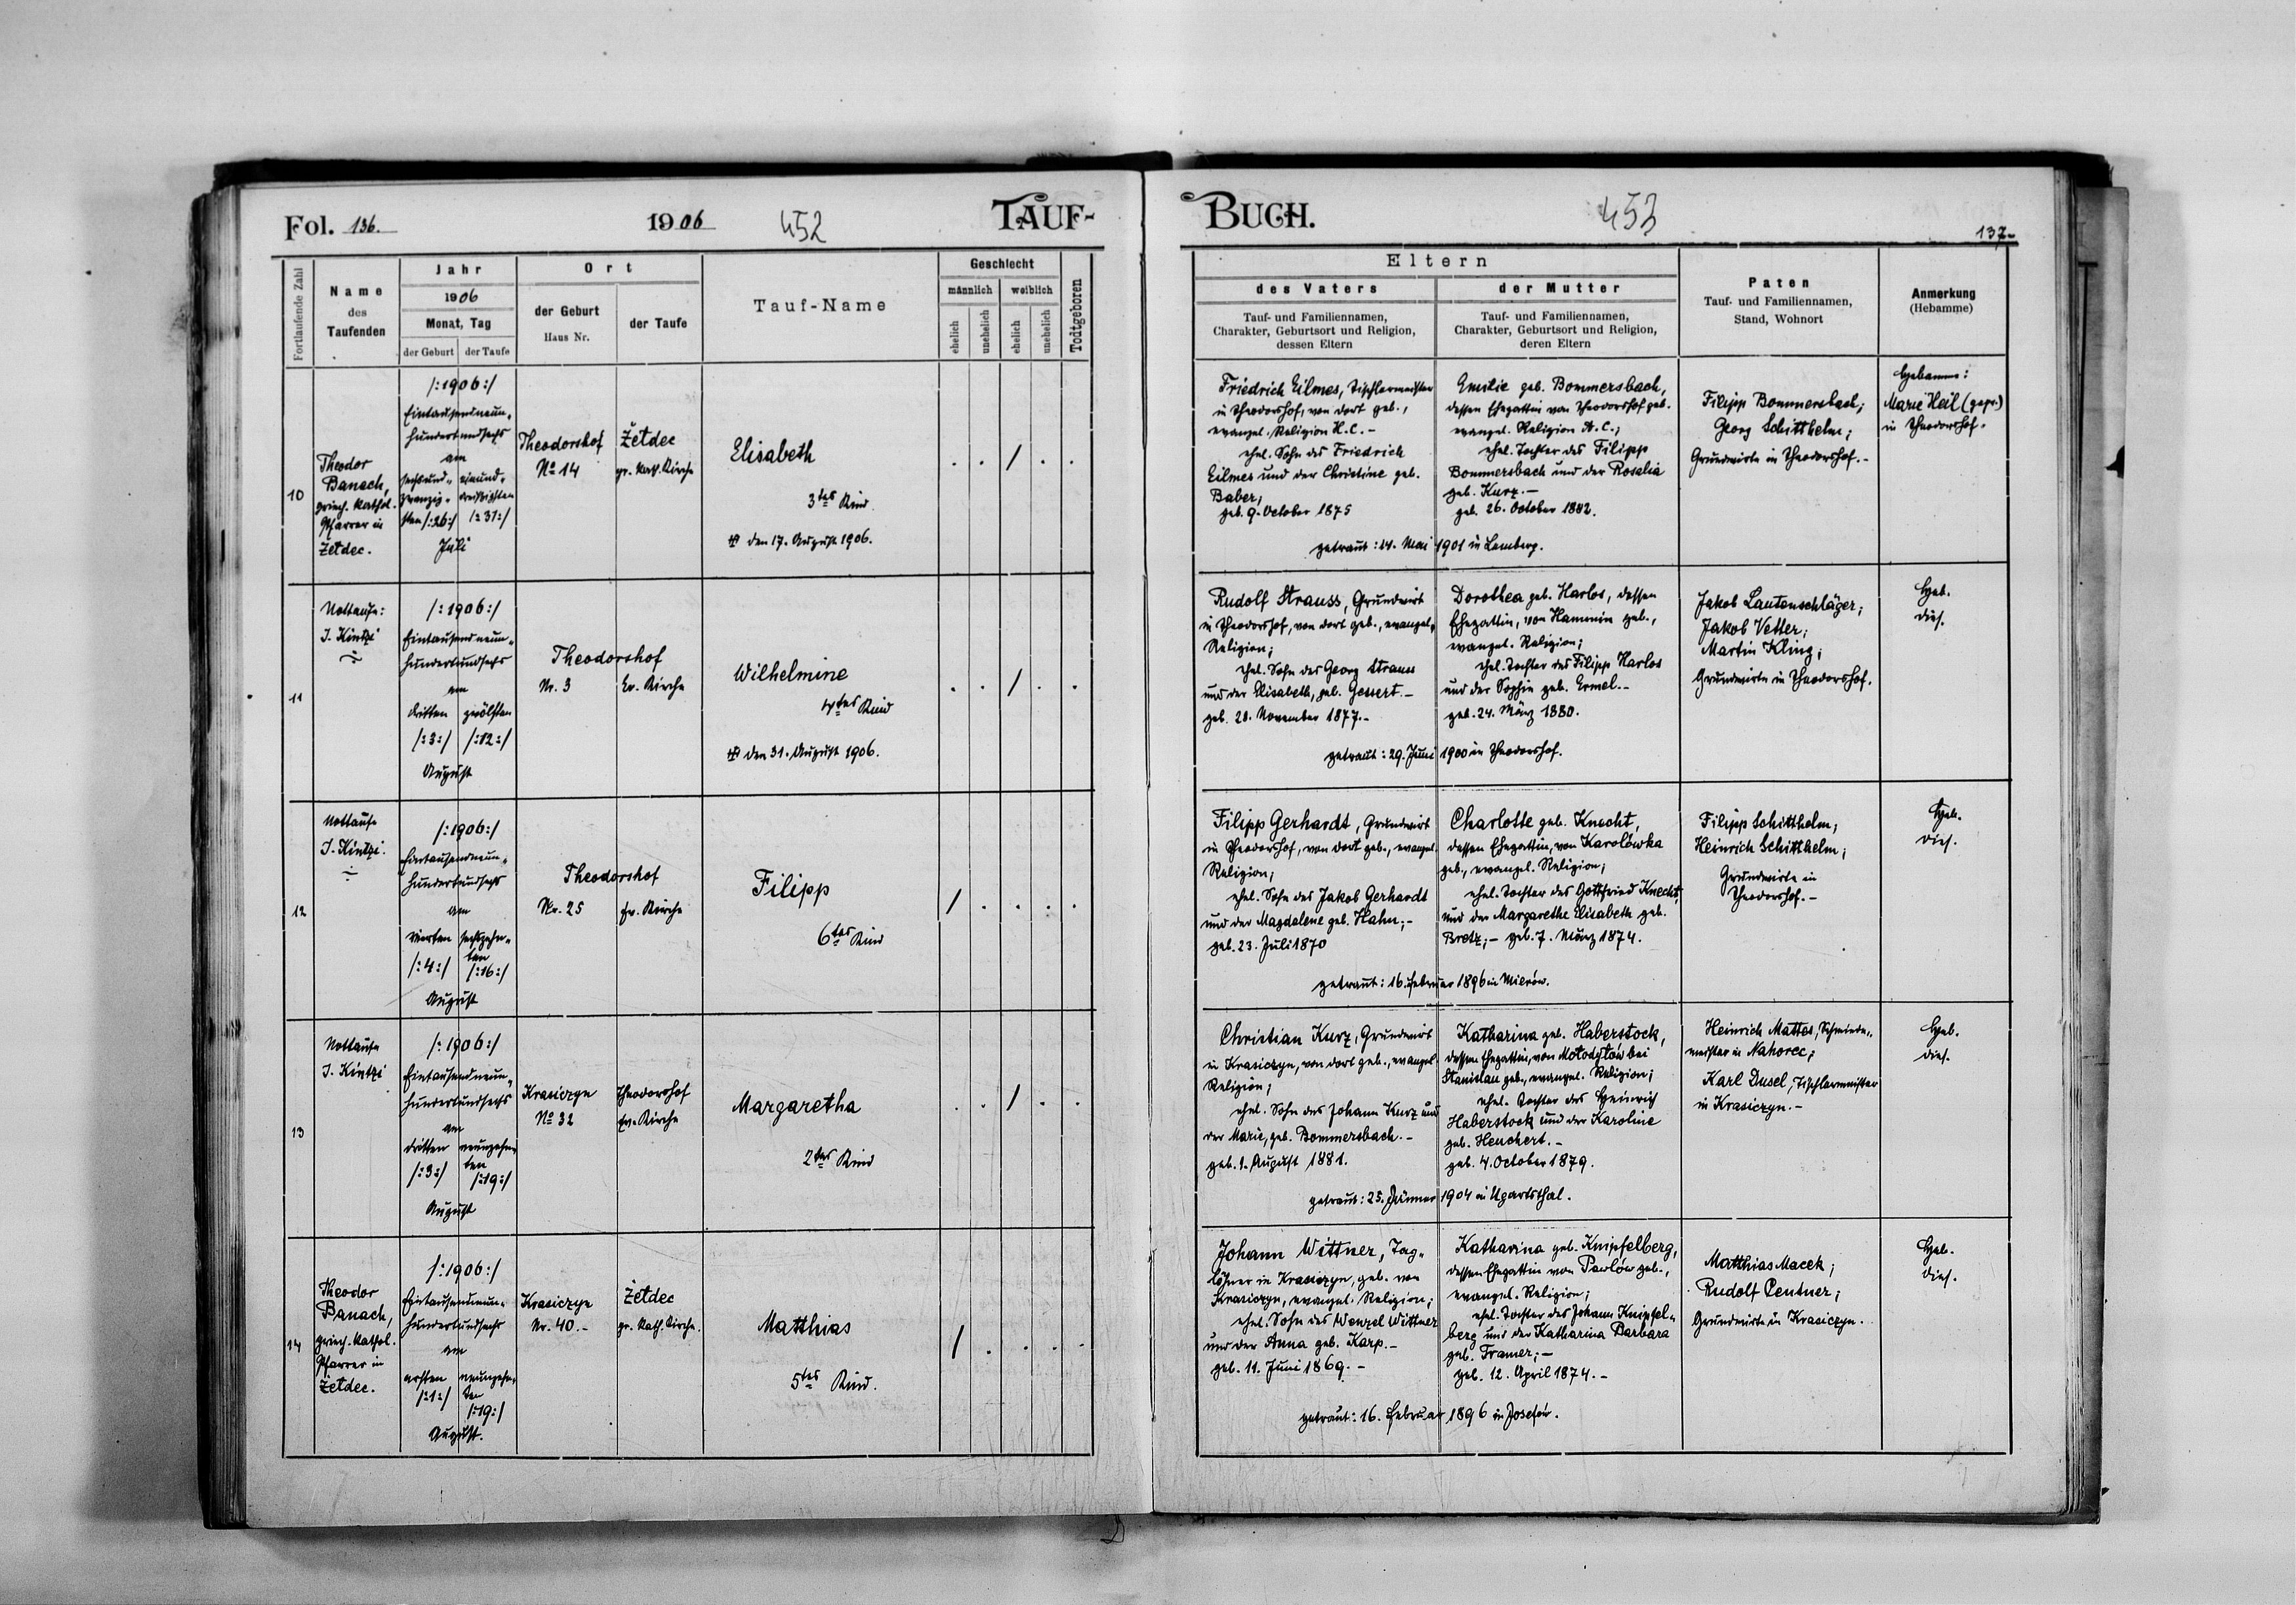 Fol. 136.
1906
452
TAUF-
Fortlaufende Zahl
Name
des
Taufenden
Jahr
1906
Monat, Tag
der Geburt
der Taufe
Ort
der Geburt
Haus Nr.
der Taufe
Tauf-Name
Geschlecht
männlich
weiblich
ehelich
unehelich
ehelich
unehelich
Todtgeboren
10
Theodor
Banach,
griech. kathol.
Pfarrer in
Żetdec.
/:1906:/
Eintausendneun-
hundertundsechs
am
sechsund-
zwanzig-
sten /:26:/
einund-
dreißigsten
/:31:/
Juli
Theodorshof
No 14
Żetdec
gr. kath. Kirche
Elisabeth
3tes Kind.
den 17. August 1906.
. . / . .
11
Nottaufe:
J. Kintzi
/:1906:/
Eintausendneun-
hundertundsechs
am
dritten
/:3:/
zwölften
/:12:/
August
Theodorshof
Nr. 3
Ev. Kirche
Wilhelmine
4tes Kind
den 31. August 1906.
. . / . .
12
Nottaufe
J. Kintzi.
/:1906:/
Eintausendneun-
hundertundsechs
am
vierten
/:4:/
sechzehn-
ten
/:16:/
August
Theodorshof
Nr. 25
Ev. Kirche
Filipp
6tes Kind
/ . . . .
13
Nottaufe
J. Kintzi
/:1906:/
Eintausendneun-
hundertundsechs
am
dritten
/:3:/
neunzehn-
ten
/:19:/
August
Krasiczyn
No 32
Theodorshof
Ev. Kirche
Margaretha
2tes Kind
. . / . .
14
Theodor
Banach,
griech. kathol.
Pfarrer in
Żetdec.
/:1906:/
Eintausendneun-
hundertundsechs
am
ersten
/:1:/
neunzehn-
ten
/:19:/
August.
Krasiczyn
Nr. 40.-
Żetdec
gr. kath. Kirche.
Matthias
5tes Kind.
/ . . . .
BUCH.
453
137.
Eltern
des Vaters
Tauf- und Familiennamen,
Charakter, Geburtsort und Religion,
dessen Eltern
der Mutter
Tauf- und Familiennamen,
Charakter, Geburtsort und Religion,
deren Eltern
Paten
Tauf- und Familiennamen,
Stand, Wohnort
Anmerkung
(Hebamme)
Friedrich Eilmes, Tischlermeister
in Theodorshof, von dort geb.,
evangel. Religion H.C.-
ehel. Sohn des Friedrich
Eilmes und der Christine geb.
Baber;
geb. 9. October 1875
Emilie geb. Bommersbach,
dessen Ehegattin von Theodorshof geb.
evangel. Religion A.C.;
ehel. Tochter des Filipp
Bommersbach und der Rosalia
geb. Kurz.-
geb. 26. October 1882.
getraut: 14. Mai 1901 in Lemberg.
Filipp Bommersbach;
Georg Schitthelm;
Grundwirte in Theodorshof.-
Hebamme:
Marie Heil (gepr.)
in Theodorshof.
Rudolf Strauss, Grundwirt
in Theodorshof, von dort geb., evangel.
Religion;
ehel. Sohn des Georg Strauss
und der Elisabeth, geb. Gessert.-
geb. 20. November 1877.-
Dorothea geb. Harlos, dessen
Ehegattin, von Hanunin geb.,
evangel. Religion;
ehel. Tochter des Filipp Harlos
und der Sophie geb. Ermel.-
geb. 24. März 1880.
getraut: 29. Juni 1900 in Theodorshof.
Jakob Lautenschläger;
Jakob Vetter;
Martin Kling;
Grundwirte in Theodorshof.
Heb.
dies.
Filipp Gerhardt, Grundwirt
in Theodorshof, von dort geb., evangel.
Religion;
ehel. Sohn des Jakob Gerhardt
und der Magdalene geb. Hahn;-
geb. 23. Juli 1870
Charlotte geb. Knecht,
dessen Ehegattin, von Karolówka
geb., evangel. Religion;
ehel. Tochter des Gottfried Knecht
und der Margarethe Elisabeth geb.
Bretz;- geb. 7. März 1874.
getraut: 16. Februar 1896 in Mierów.
Filipp Schitthelm;
Heinrich Schitthelm;
Grundwirte in
Theodorshof.-
Heb.
dies.
Christian Kurz, Grundwirt
in Krasiczyn, von dort geb., evangel.
Religion;
ehel. Sohn des Johann Kurz und
der Marie, geb. Bommersbach.-
geb. 1. August 1881.
Katharina geb. Haberstock,
dessen Ehegattin, von Mołodyłów bei
Stanislau geb., evangel. Religion;
ehel. Tochter des Heinrich
Haberstock und der Karoline
geb. Heuchert.-
geb. 4. October 1879.
getraut: 25. Jänner 1904 in Ugartsthal.
Heinrich Mattes, Schmiede-
meister in Nahorec;
Karl Dusel, Tischlermeister
in Krasiczyn.-
Heb.
dies.
Johann Wittner, Tag-
löhner in Krasiczyn, geb. von
Krasiczyn, evangel. Religion;
ehel. Sohn des Wenzel Wittner
und der Anna geb. Karp.-
geb. 11. Juni 1869.-
Katharina geb. Knipfelberg,
dessen Ehegattin von Pawłów geb.,
evangel. Religion;
ehel. Tochter des Johann Knipfel-
berg und der Katharina Barbara
geb. Framer;-
geb. 12. April 1874.-
getraut: 16. Februar 1896 in Josefów.
Matthias Macek;
Rudolf Centner;
Grundwirte in Krasiczyn.
Heb.
dies.